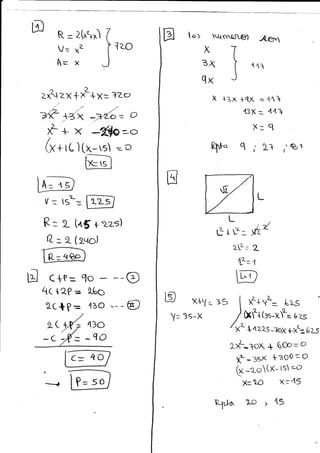 1
R = 2(x²+x)
V = x²
A = x
720
2x²+2x+x²+x = 720
3x²+3x-720 = 0
x² + x - 240 = 0
(x+16)(x-15) = 0
x=15
A = 15
V = 15² = 225
R = 2 (15 + 225)
R = 2 (240)
R = 480
2
C+P = 90 --- ①
4C+2P = 260
2C+P = 130 --- ②
2C+P = 130
-C-P = -90
C = 40
→ P = 50
3
los numeros son
x
3x
9x
117
x +3x +9x = 117
13x = 117
x = 9
Rpta 9 ; 27 ; 81
4
√2
L
L
L²+L² = √2²
2L² = 2
L² = 1
L=1
5
x+y = 35
y = 35-x
x²+y² = 625
(x)²+(35-x)² = 625
x²+1225-70x+x²=625
2x²-70x + 600 = 0
x² - 35x + 300 = 0
(x-20)(x-15) = 0
x=20 x=15
Rpta 20 , 15